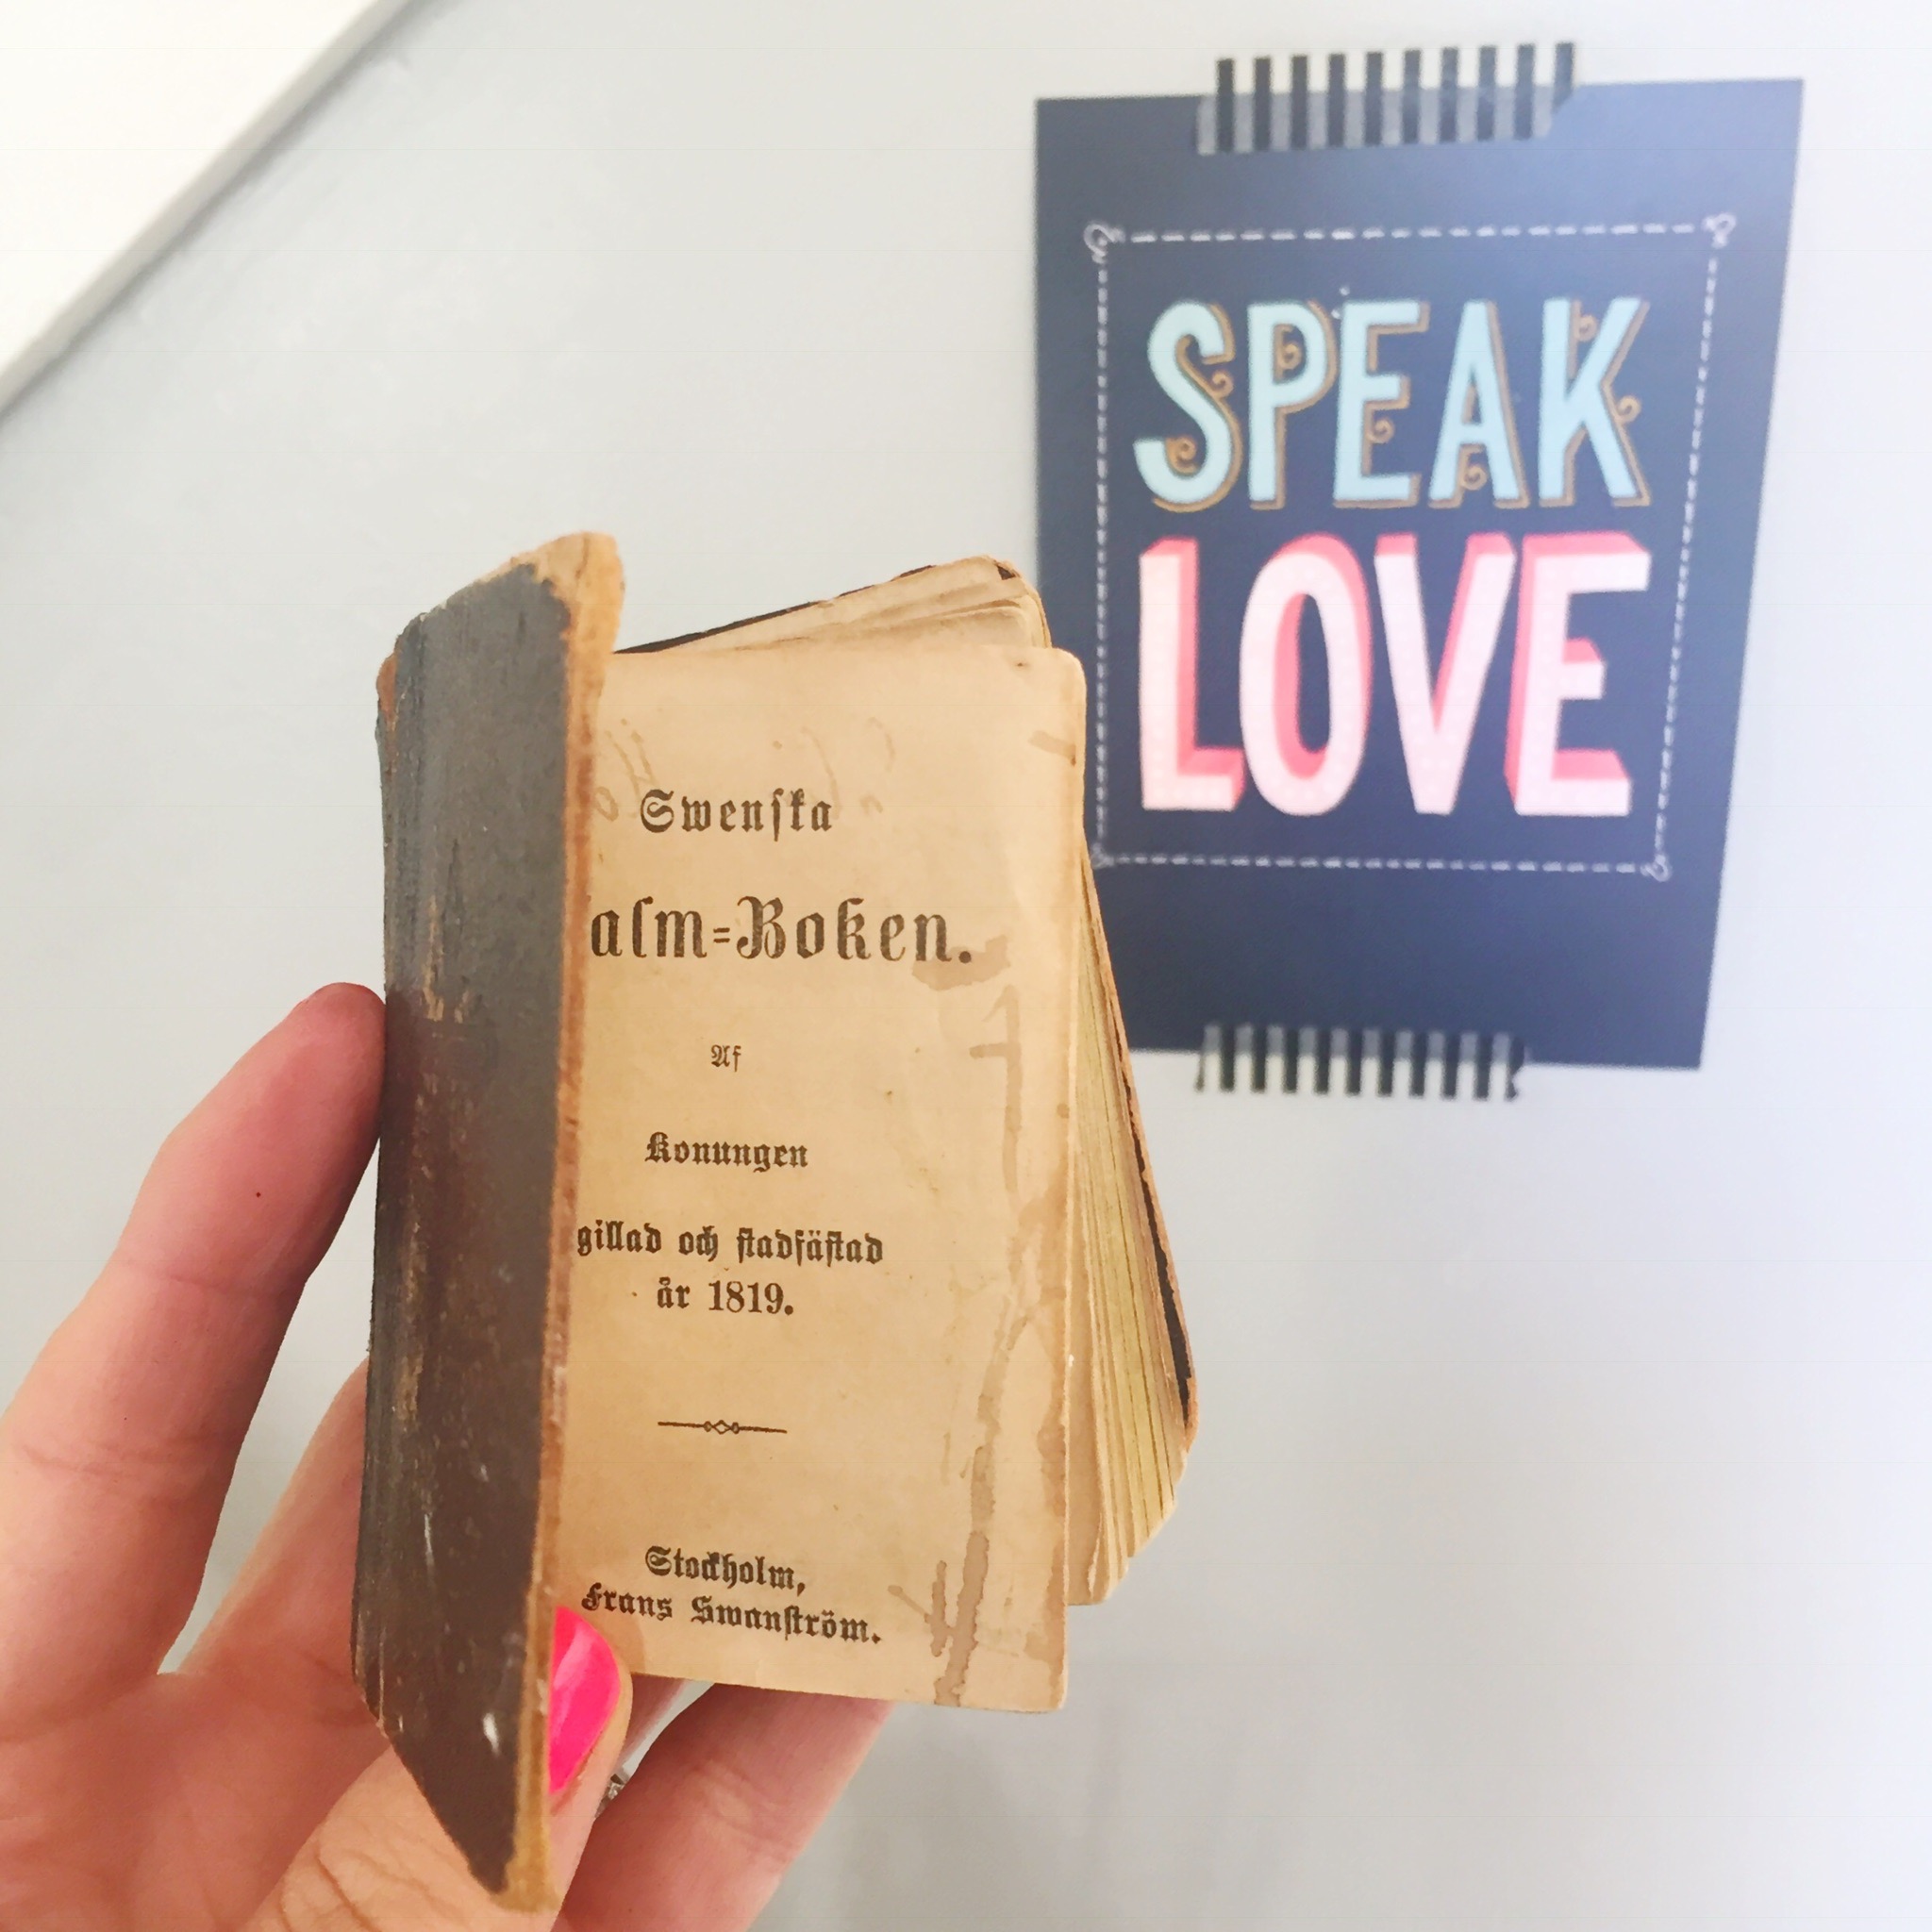 Swenſka
alm=Boken.
Af
Konungen
gillad och ſtadfäſtad
år 1819.
Stockholm,
Frans Swanſtröm.
SPEAK
LOVE